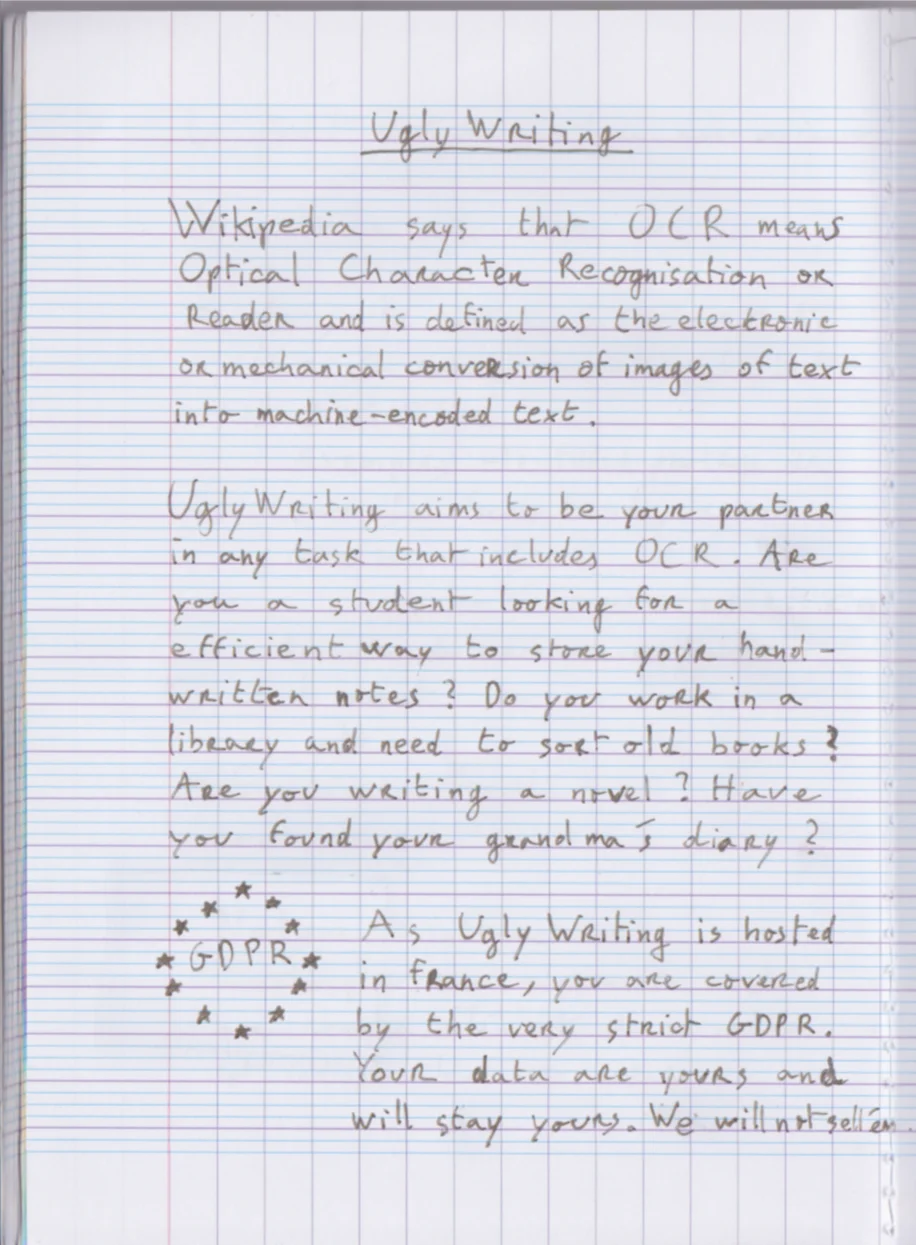 Ugly Writing
Wikipedia says that OCR means
Optical Character Recognisation or
Reader and is defined as the electronic
or mechanical conversion of images of text
into machine-encoded text.
Ugly Writing aims to be your partner
in any task that includes OCR. Are
you a student looking for a
efficient way to store your hand-
written notes ? Do you work in a
library and need to sort old books ?
Are you writing a novel ? Have
you found your grandma's diary ?
GDPR
As Ugly Writing is hosted
in France, you are covered
by the very strict GDPR.
Your data are yours and
will stay yours. We will not sell'em.